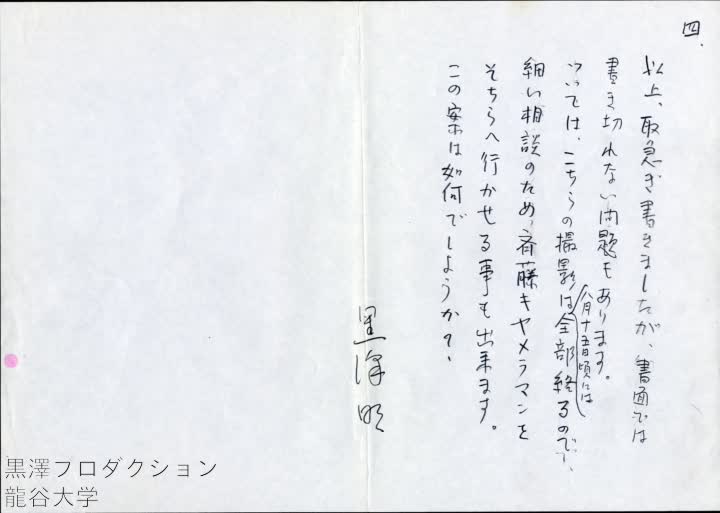 四.
以上、取急ぎ書きましたが、書面では
書き切れない問題もあります。
ついては、こちらの撮影は全部終るので、
八月十五日頃には
細い相談のため、斉藤キヤメラマンを
そちらへ行かせる事も出来ます。
この案は如何でしようか?
黒澤明
黒澤プロダクション
龍谷大学